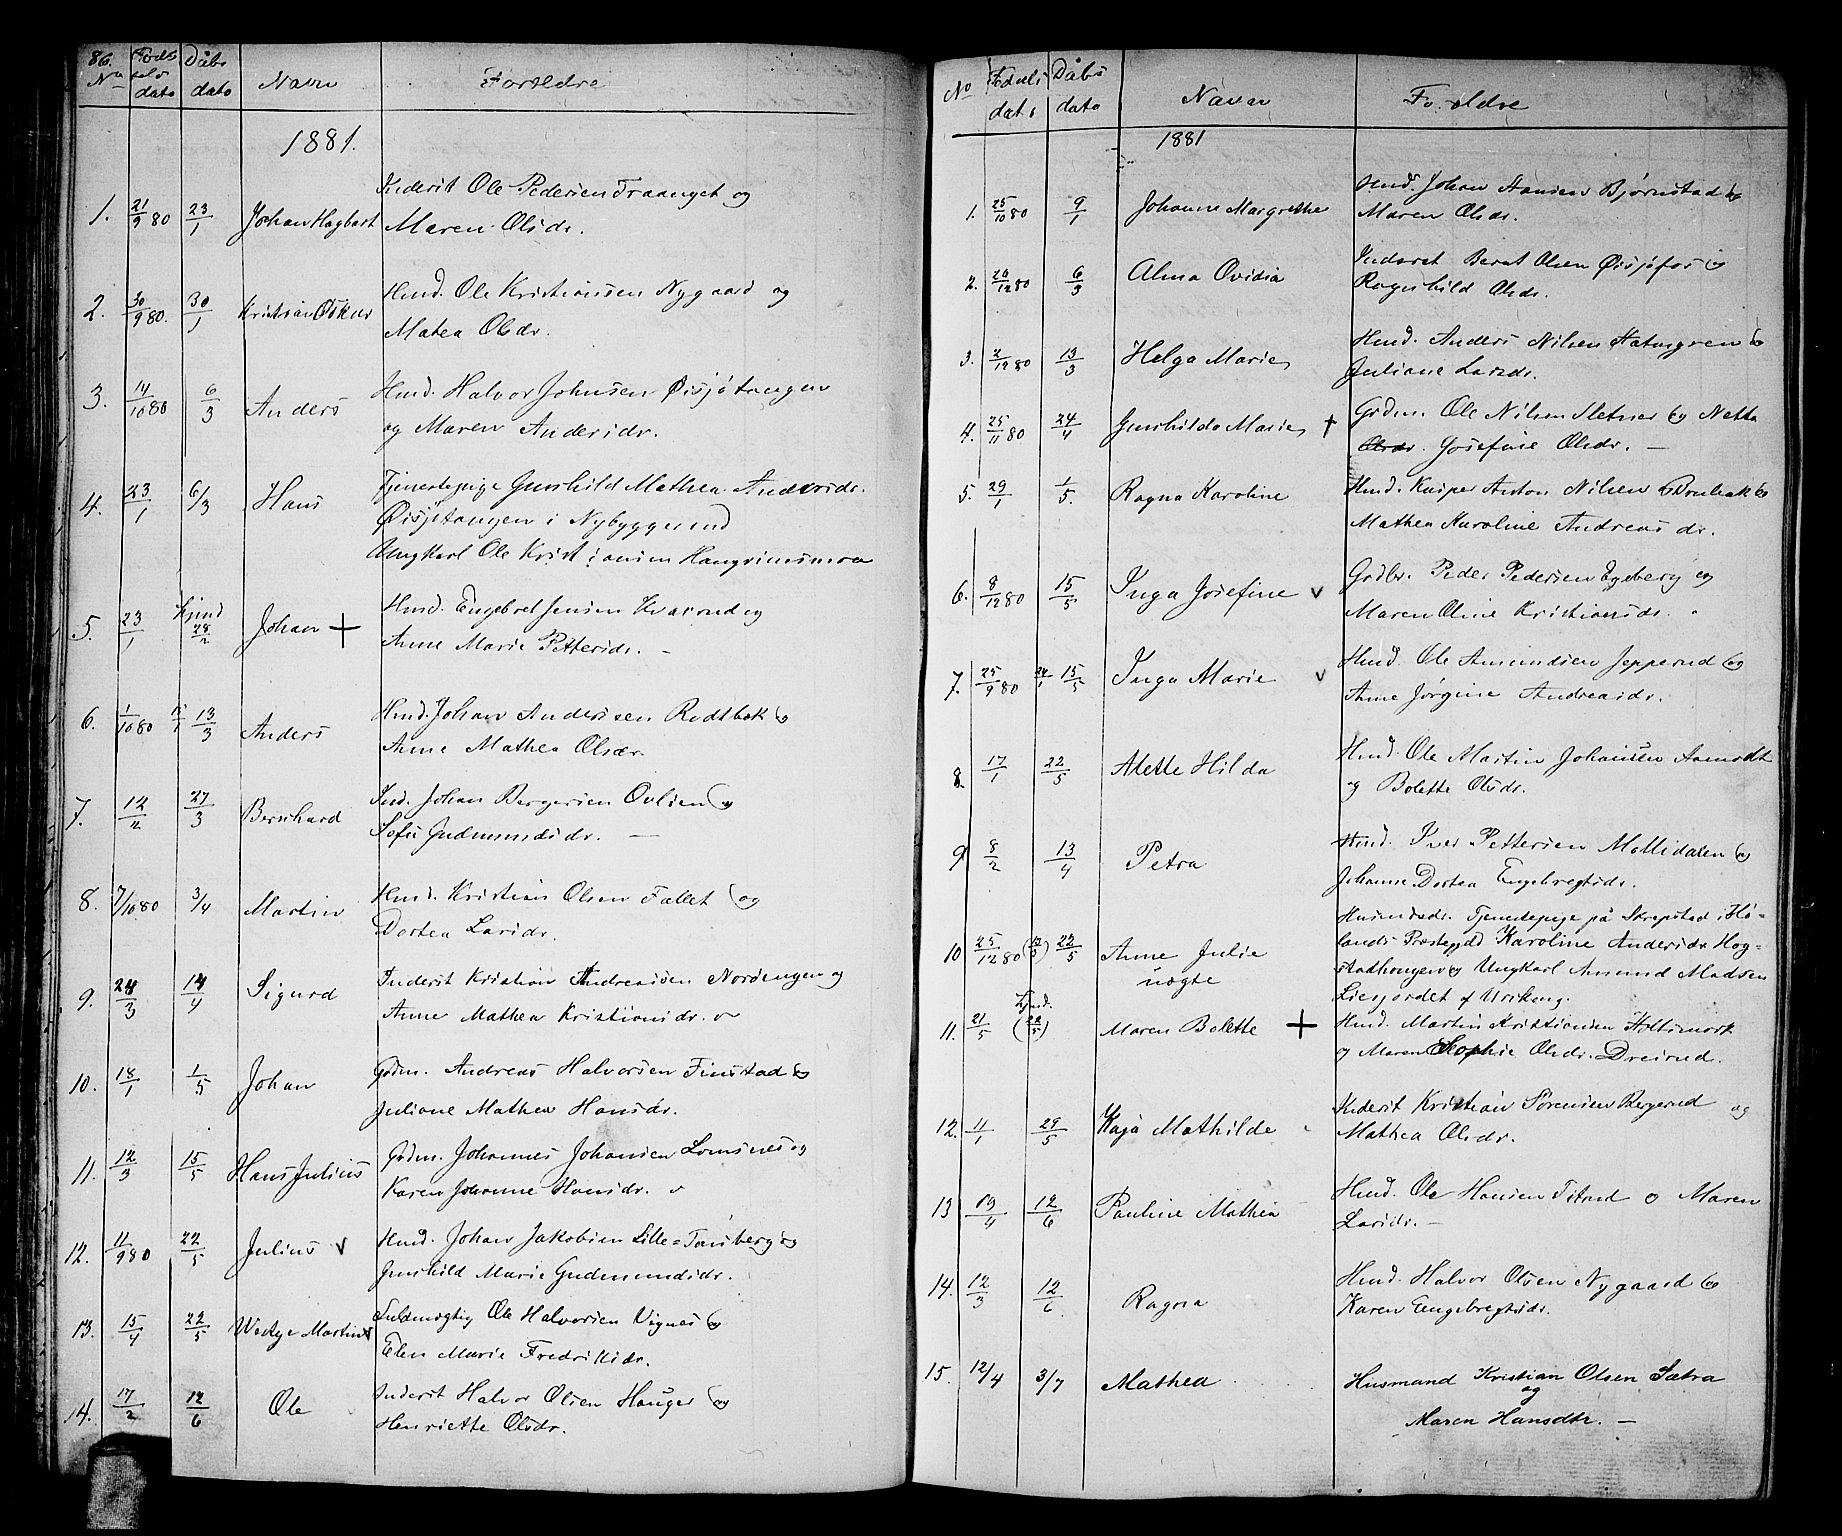 86.
No Føds
els
dato Dåbs
dato Navn Forældre
1881.
1. 21/9 80 23/1 Johan Hagbart Inderst Ole Pedersen Traanget og
Maren Olsdr.
2. 30/9 80. 30/1 Kristian Oskar Hmd. Ole Kristiansen Nygaard og
Matea Olsdr.
3. 14/10 80 6/3 Anders Hmd. Halvor Johnsen Øisjötangen
og Maren Andersdr.
4. 23/1 6/3 Hans Tjenestepige Gunhild Mathea Andersdr.
Øisjötangen i Nybyggerud
Ungkarl Ole Kristiansen Hangrimsmoen
5. 23/1 hjmd 28/2 Johan + Hmd. Engebret Jensen Kvarud og
Anne Marie Pettersdr. —
6. 1/10 80 13/3 Anders Hmd. Johan Andersen Rødtbæk og
Anne Mathea Olsdr.
7. 12/2 27/3 Bernhard Ind. Johan Bergersen Ovlien og
Sofie Gudmundsdr. —
8. 7/10 80 3/4 Martin Hmd. Kristian Olsen Fallet og
Dortea Larsdr.
9. 24/3 14/4 Sigurd Inderst Kristian Andreassen Nordengen og
Anne Mathea Kristiansdr. v
10. 18/1 1/5 Johan Grdm. Andreas Halvorsen Finstad og
Juliane Mathea Hansdr.
11. 12/3 15/5 Hans Julius Grdm. Johannes Johansen Lomsnes og
Karen Johanne Hansdr. v
12. 11/9 80 22/5 Julius v Hmd. Johan Jakobsen Lille-Tønsberg og
Gunhild Marie Gudmundsdr.
13. 15/4 22/5 Martin Ole Halvorsen Vignes og
Elen Marie Fredriksdr.
14. 17/2 12/6 Ole Inderst Halvor Olsen Hauger og
Henriette Olsdr.
No Fødsels
dato Dåbs
dato Navn Forældre
1881
1. 25/10 80 9/1 Johanne Margrethe Hmd. Johan Hansen Bjørnstad og
Maren Olsdr.
2. 26/12 80 6/3 Alma Ovidia Inderst Bernt Olsen Øisjøfos og
Ragnhild Olsdr.
3. 2/12 80 13/3 Helga Marie Hmd. Anders Nilsen og
Juliane Larsdr.
4. 25/11 80 24/4 Gunhilda Marie † Grdm. Ole Nilsen Sletner og Netta
Olsdr. Josefine Olsdr. —
5. 29/1 1/5. Ragna Karoline Hmd. Kasper Anton Nilsen og
Mathea Karoline Andreasdr.
6. 8/12 80 15/5 Inga Josefine v Grdbr. Peder Pedersen Egeberg og
Maren Oline Kristiansdr.
7. 25/9 80 24/1 15/5 Inga Marie v Hmd. Ole Amundsen Jepperud og
Anne Jørgine Andreasdr.
8. 17/1 22/5 Alette Hilda Hmd. Ole Martin Johansen Aamodt
og Bolette Olsdr.
9 8/2 13/4 Petra Hmd. Iver Pettersen Mollidalen og
Johanne Dortea Engebregtsdr.
10 25/12 80 22/5 Anne Julie
uægte Husmdsdr. Tjenestepige på Skrepstad i Hø-
lands Præstegjd Karoline Andersdr. Hog-
stadhougen og Ungkarl Amund Madsen
Liesjordet af Urskoug.
11. 21/5 hjmd. (22/5) Maren Bolette + Hmd. Martin Kristiansen Holtsmork
og Maren Sophie Olsdr. Dreirud.
12. 11/1 29/5 Kaja Mathilde Inderst Kristian Sørensen Bergerud og
Mathea Olsdr.
13 19/4 12/6 Pauline Mathea Hmd. Ole Hansen Titrud og Maren
Larsdr. —
14. 12/3 12/6 Ragna Hmd. Halvor Olsen Nygaard og
Karen Engebregtsdr.
15. 12/4 3/7 Mathea Husmand Kristian Olsen Sætra
og
Maren Hansdtr. —